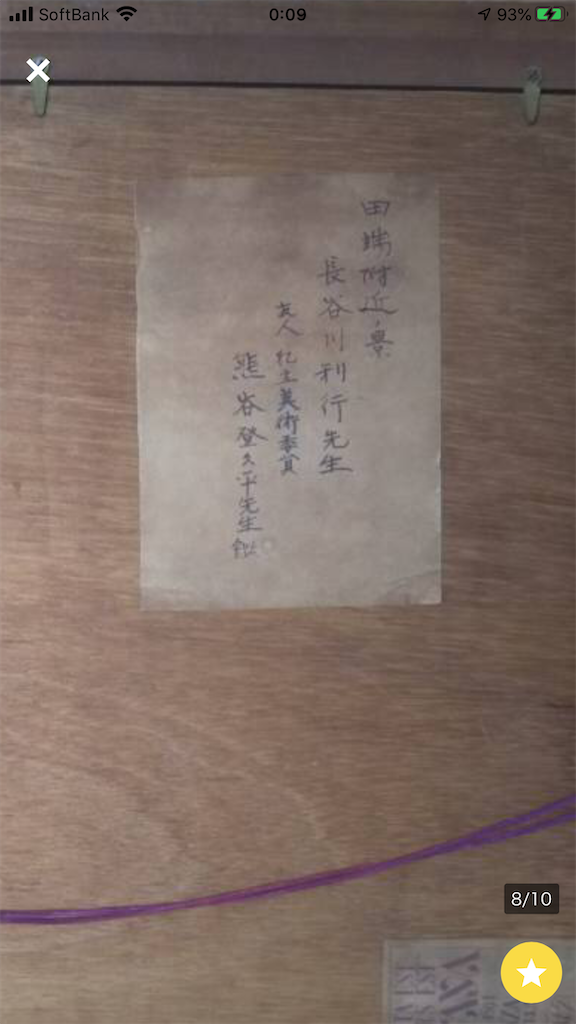 SoftBank
0:09
93%
田端附近景
長谷川利行先生
友人 
美術委員
熊谷登久平先生鑑
8/10